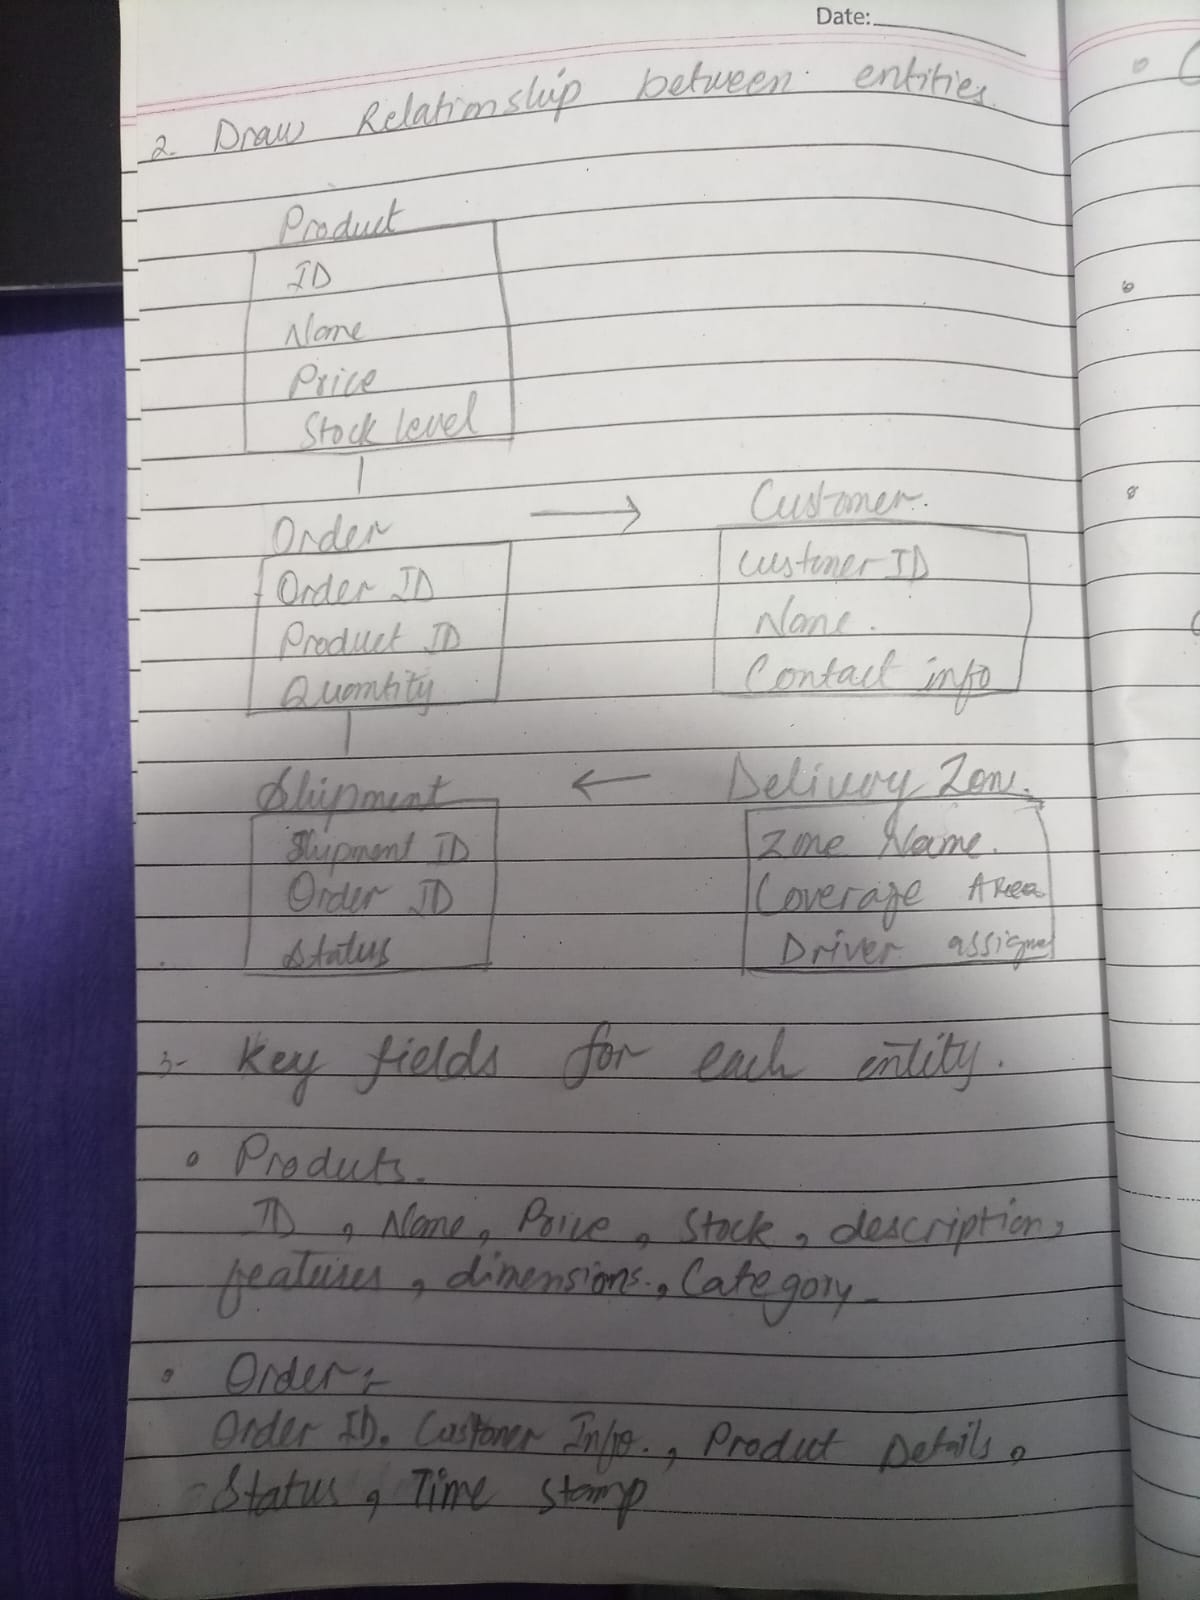 Date:
2. Draw Relationship between entities.
Product
ID
Name
Price
Stock level
Order → Customer.
Order ID
Product ID
Quantity
Customer ID
Name.
Contact info
Shipment ← Delivery Zone.
Shipment ID
Order ID
Status
Zone Name.
Coverage Area
Driver assigned
3- Key fields for each entity.
• Produts.
ID, Name, Price, Stock, description,
features, dimensions., Category
• Order:-
Order ID. Customer Info., Product Details,
Status, Time stamp